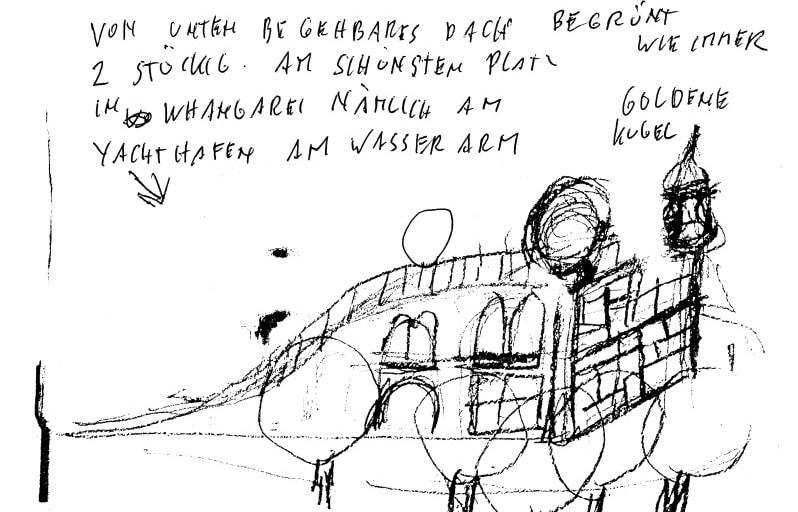 VON UNTEN BEGEHBARES DACH BEGRÜNT
WIE IMMER
2 STÖCKIG. AM SCHÖNSTEM PLATZ
IM WHANGAREI NÄMLICH AM
YACHTHAFEN AM WASSERARM
GOLDENE
KUGEL